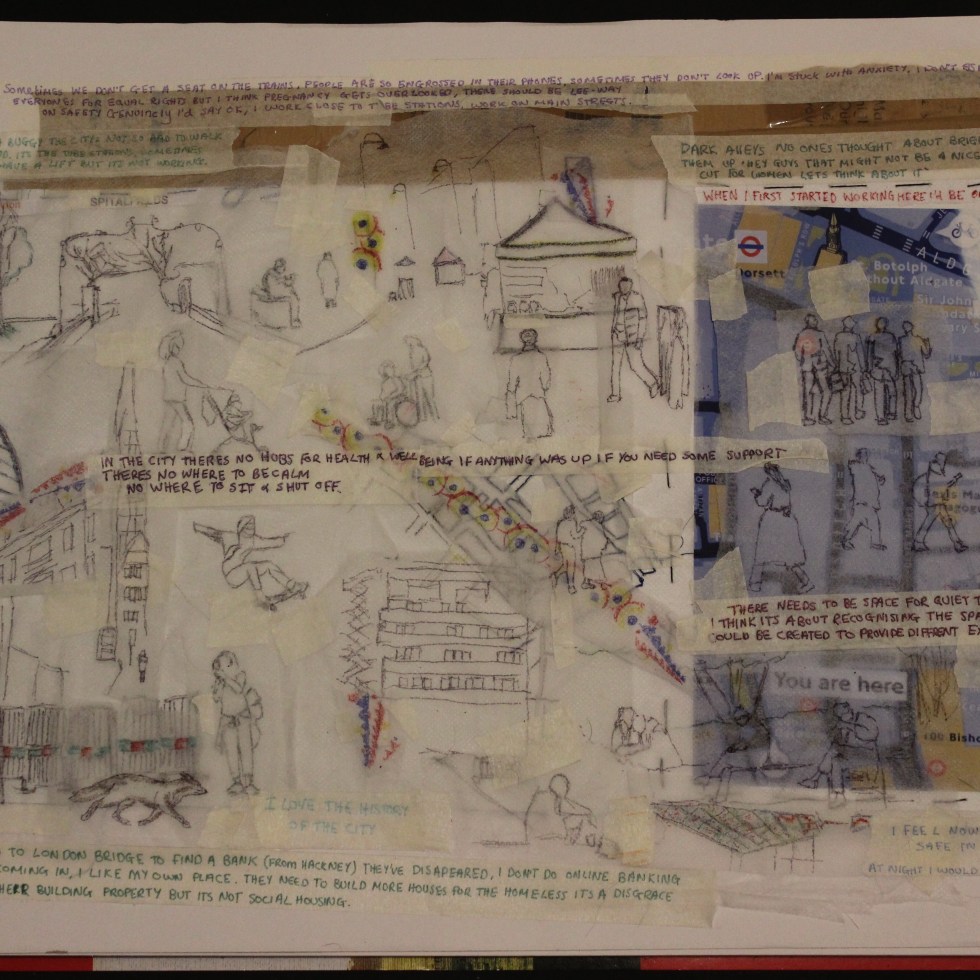 SOMETIMES WE DON'T GET A SEAT ON THE TRAINS. PEOPLE ARE SO ENGROSSED IN THEIR PHONES, SOMETIMES THEY DON'T LOOK UP. I'M STUCK WITH ANXIETY, I DON'T
EVERYONES FOR EQUAL RIGHTS BUT I THINK PREGNANCY GETS OVERLOOKED, THERE SHOULD BE LEE-WAY
ON SAFETY GENUINELY I'D SAY OK, I WORK CLOSE TO TUBE STATIONS. WORK ON MAIN STREETS.
BUGGY THE CITYS NOT SO BAD TO WALK
ITS THE TUBE STATIONS, SOMETIMES
HAVE A LIFT BUT ITS NOT WORKING.
DARK ALLEYS NO ONES THOUGHT ABOUT
THEM UP 'HEY GUYS THAT MIGHT NOT BE A NICE
CUT FOR WOMEN LETS THINK ABOUT IT'
WHEN I FIRST STARTED WORKING HERE I'LL BE
SPITALFIELDS
Botolph
without Aldgate
Sir John
IN THE CITY THERES NO HUBS FOR HEALTH & WELL BEING IF ANYTHING WAS UP IF YOU NEED SOME SUPPORT
THERES NO WHERE TO BE CALM
NO WHERE TO SIT & SHUT OFF.
THERE NEEDS TO BE SPACE FOR QUIET
I THINK ITS ABOUT RECOGNISING THE
COULD BE CREATED TO PROVIDE DIFFERENT
You are here
I LOVE THE HISTORY
OF THE CITY
I FEEL NOW
SAFE IN
AT NIGHT I WOULD
TO LONDON BRIDGE TO FIND A BANK (FROM HACKNEY) THEY'VE DISAPEARED, I DON'T DO ONLINE BANKING
COMING IN, I LIKE MY OWN PLACE. THEY NEED TO BUILD MORE HOUSES FOR THE HOMELESS ITS A DISGRACE
BUILDING PROPERTY BUT ITS NOT SOCIAL HOUSING.